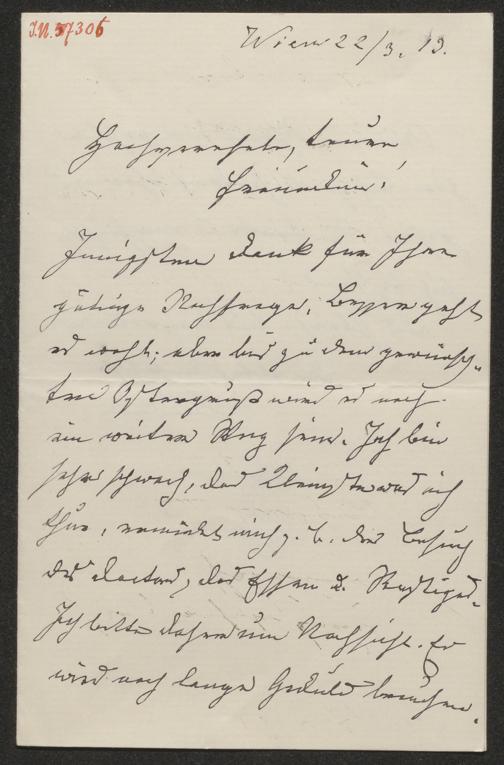 J.N. 57306
Wien 22/3. 19.
Hochverehrte, teure
Freundin!
Innigsten Dank für Ihre
gütige Nachfrage. Besser geht
es wohl; aber bis zu dem gewünsch-
ten Ostergruß wird es noch
ein weiter Weg sein. Ich bin
sehr schwach, das Kleinste was ich
thue, ermüdet mich z. b. der Besuch
des Doctors, das Essen u.
Ich bitte daher um Nachsicht. Es
wird noch lange Geduld brauchen.